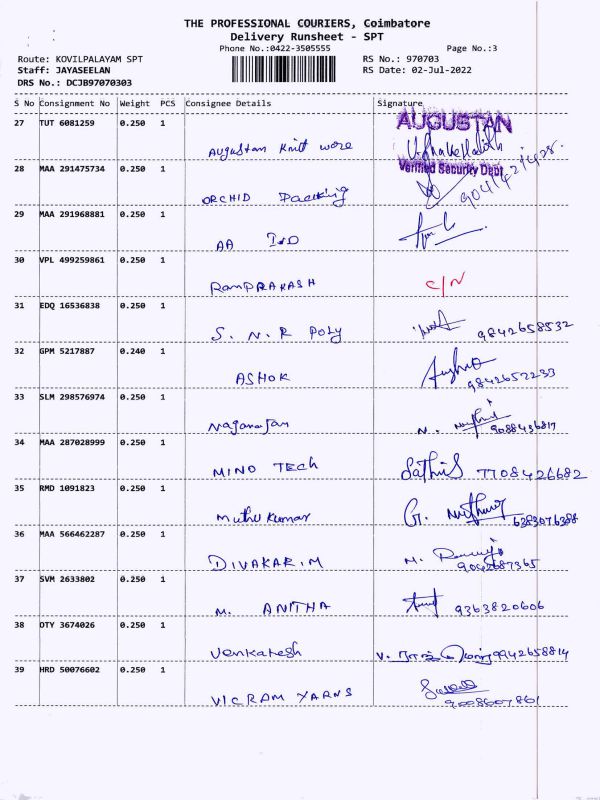 THE PROFESSIONAL COURIERS, Coimbatore
Delivery Runsheet - SPT
Phone No.:0422-3505555 Page No.:3
Route: KOVILPALAYAM SPT RS No.: 970703
Staff: JAYASEELAN RS Date: 02-Jul-2022
DRS No.: DCJB97070303
S No Consignment No Weight PCS Consignee Details Signature
27 TUT 6081259 0.250 1 AUGUSTAN
Augustan Knit wore
28 MAA 291475734 0.250 1 Verified Security Dept
ORCHID Packing
29 MAA 291968881 0.250 1
AA
30 VPL 499259861 0.250 1
RamPRAKASH C/N
31 EDQ 16536838 0.250 1
S. N. R Poly 9842658532
32 GPM 5217887 0.240 1
ASHOK 9842652233
33 SLM 298576974 0.250 1
Nagarajan N. 9088436817
34 MAA 287028999 0.250 1
MIND Tech Sathis 7708426682
35 RMD 1091823 0.250 1
Muthu Kumar G. 6383076388
36 MAA 566462287 0.250 1
DIVAKAR.M M. 9042687365
37 SVM 2633802 0.250 1
M. ANITHA 9363820606
38 OTY 3674026 0.250 1
Venkatesh V. 9942658814
39 HRD 50076602 0.250 1
VICRAM YARNS 9008607861